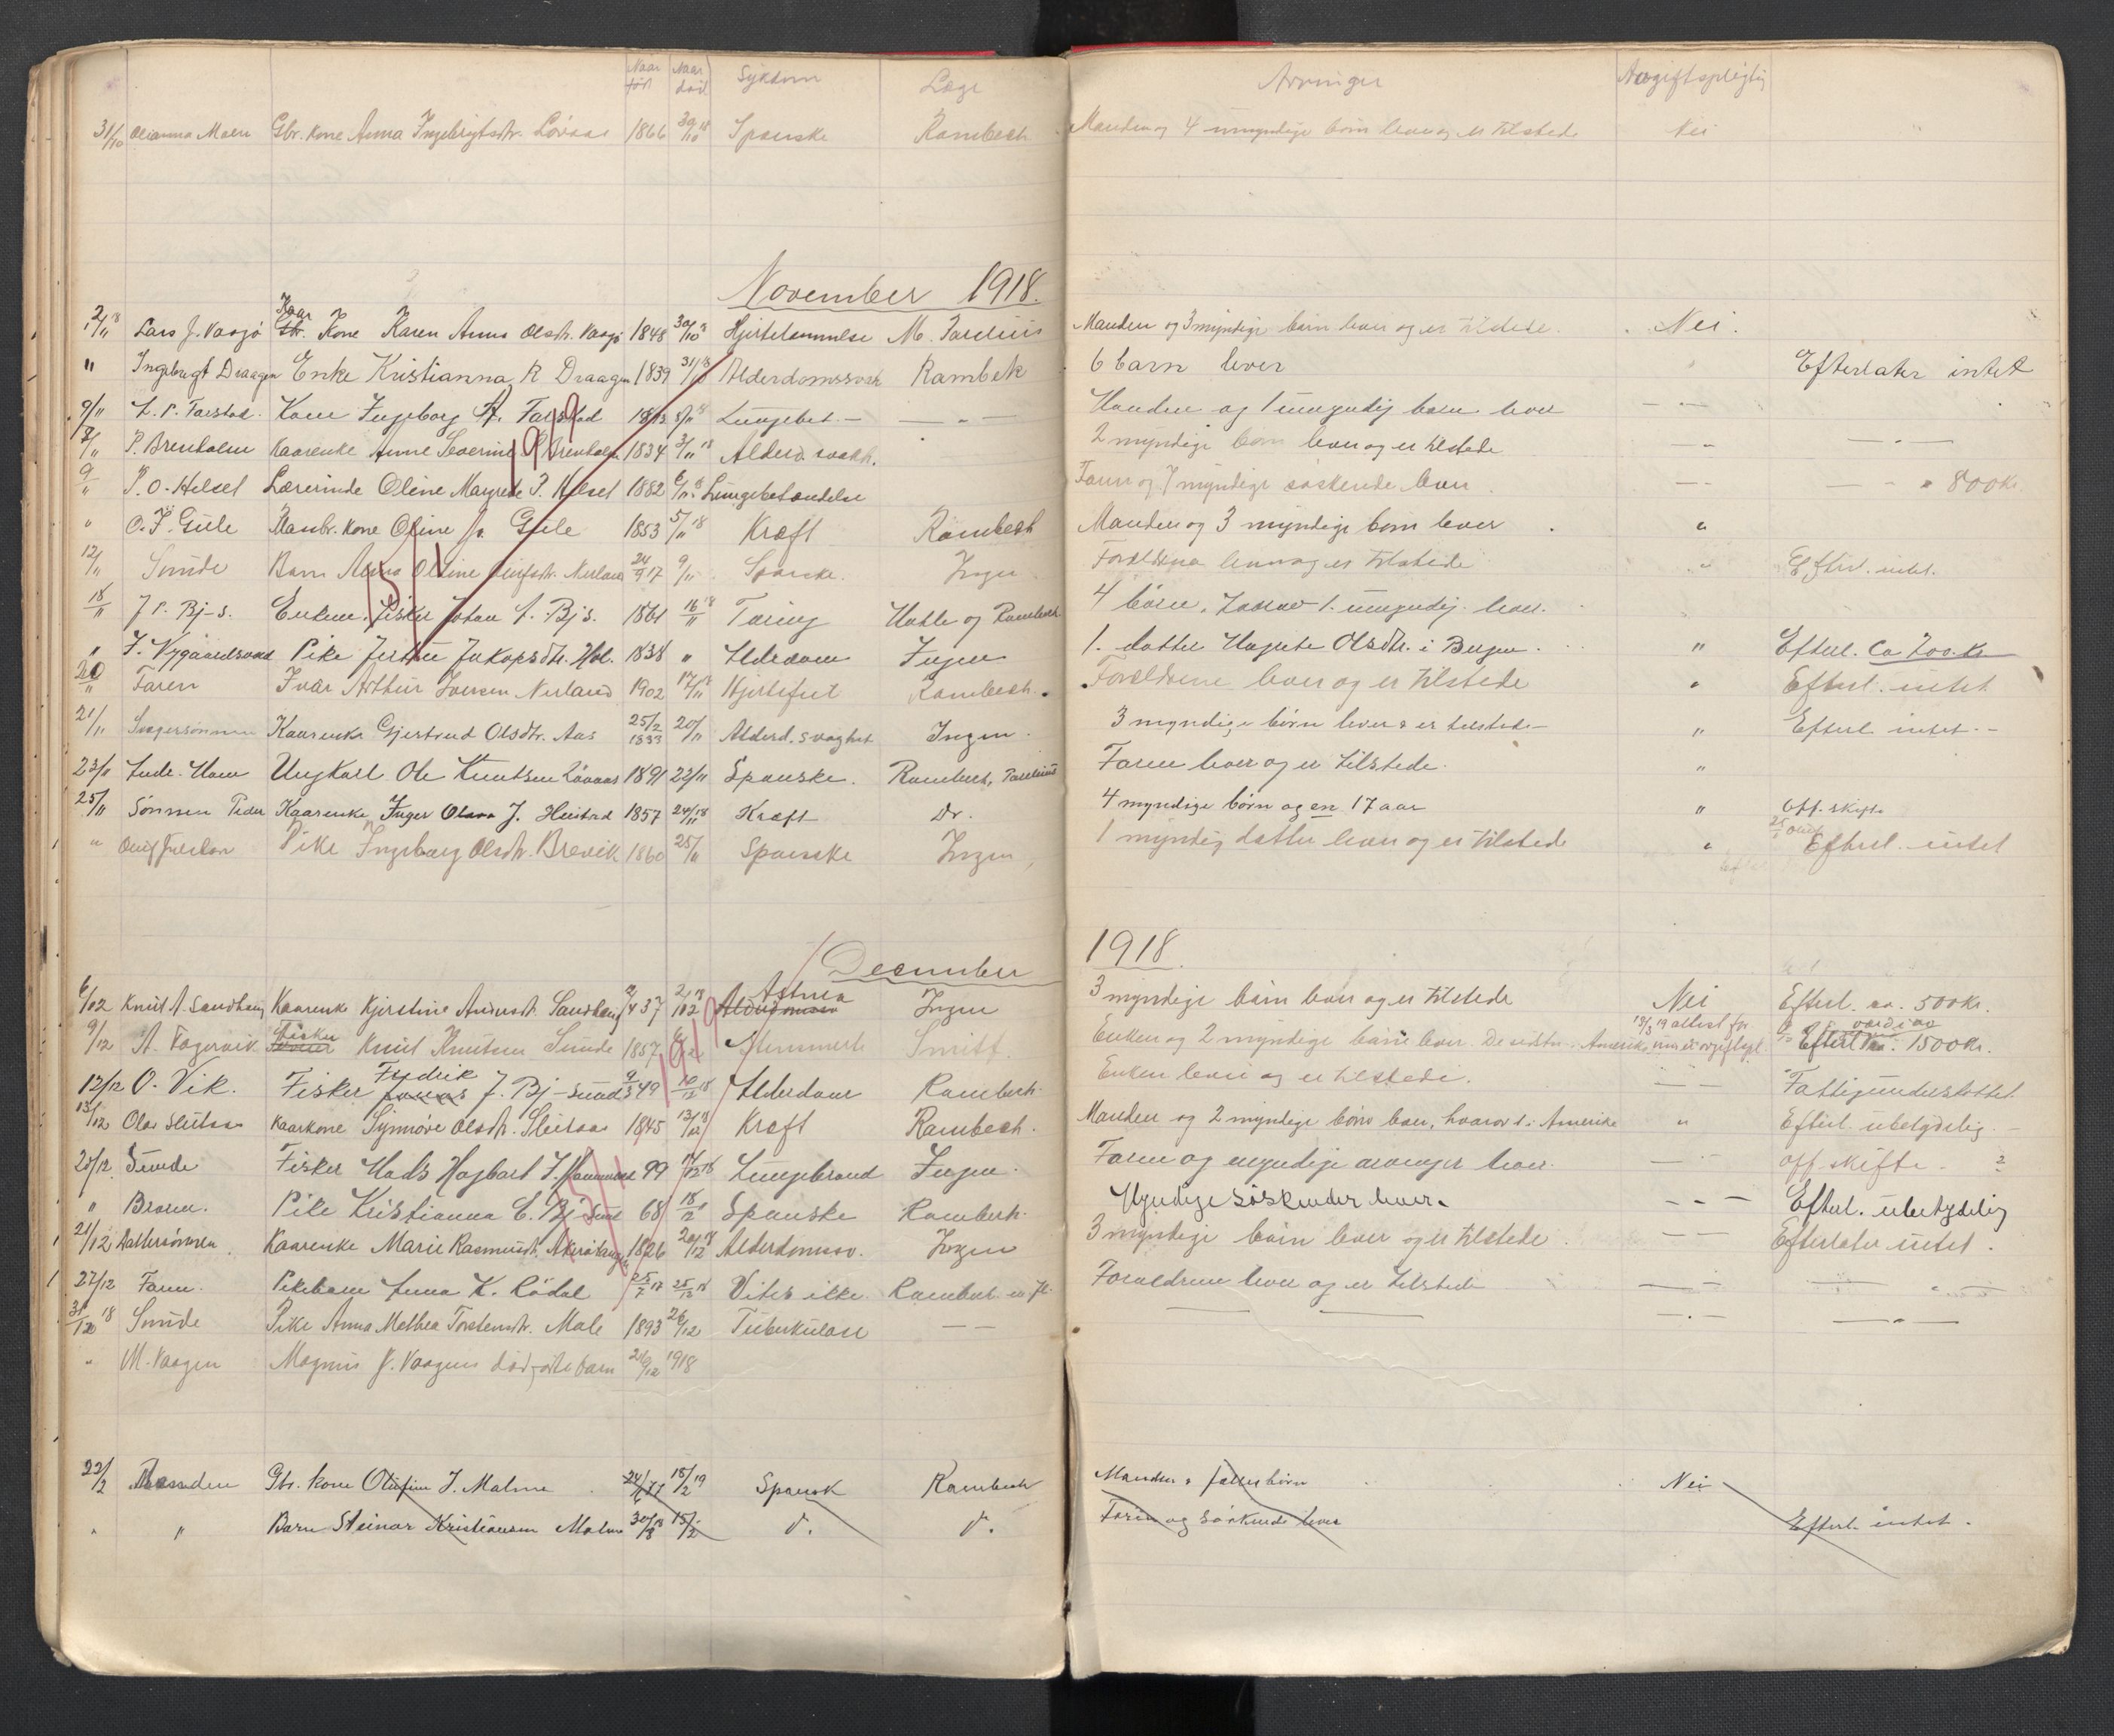 Naar født Naar död Sykdom Læge Arvinger Avgiftspligtig
31/10 Olianna Malen Gbr. kone Anna Ingebrigtsdtr. Lövaas 1866 30/10 18 Spanske Rambech Manden og 4 umyndige børn lever og er tilstede Nei
November 1918.
2/11 18 Lars J. Vaagö Kaar Kone Karen Anna Olsdtr. Vaagö 1848 30/10 18 Hjertelammelse M. Parelius Manden og 3 myndige børn lever og er tilstede. Nei.
" Ingebrigt Draagen Enke Kristianna R Draagen 1839 31/10 18 Alderdomssvak Rambek 6 barn lever Efterlater intet
9/11 L. P. Farstad. Kone Ingeborg A. Farstad 5/11 18 Lungebet. — — " — Manden og 1 umyndig barn lever — " —
8/11 P. Brenholm Kaarenke Anne Severine Brenholm 1834 3/11 18 Alderd. svakh. 2 myndige børn lever og er tilstede — " — — " —
9/11 P. O. Helset Lærerinde Oline Margrete P. Helset 1882 6/11 18 Lungebetændelse Faren og 7 myndige søskende lever — " — — " 800 kr
" O. J. Gule Kaarbr. kone Oline Gule 1853 5/11 18 Kræft Rambech Manden og 3 myndige børn lever "
12/11 Sunde Barn Anna Oldine Nerland 24/9 17 9/11 Spanske. Ingen Forældrene lever og er tilstede " Efterl. intet.
18/11 J P. Bj-s. Enkem. Fisker Johan A. Bj s. 1861 16/11 18 Tæring Hatle og Rambech 4 børn, hvorav 1. umyndig lever.
" J. Nygaardsvold Pike Jertine Jakopsdtr. Hol. 1838 " Alderdom Ingen 1. datter Hagerte Olsdtr. i Bergen. " Efterl. Ca 200. kr
20/11 Faren Ivar Arthur Iversen Nerland 1902 17/11 18 Hjertefeil Rambech. Forældrene lever og er tilstede " Efterl. intet
21/11 Svigersønnen Kaarenke Gjertrud Olsdtr. Aas 25/2 1833 20/11 Alderd. svaghet Ingen. 3 myndige børn lever & er tilstede — " Efterl intet. —
23/11 Ungkarl Ole Knutsen Lövaas 1891 22/11 Spanske. Rambech, Parelius Faren lever og er tilstede. "
25/11 Sønnen Peder Kaarenke Inger Olava J. Hustad 1857 24/11 18 Kræft Dr. 4 myndige børn og en 17 aar " Off. skifte
" Pike Ingeborg Olsdtr. Brevik 1860 25/11 Spanske Ingen 1 myndig datter lever og er tilstede " Efterl. intet
December 1918.
6/12 Knut A. Sandhaug Kaarenke Kjerstine Andersdtr. Sandhaug 2/4 37 2/12 18 Astma Alderdommen Ingen 3 myndige børn lever og er tilstede Nei Efterl. ca. 500 kr.
9/12 A. Vagervik Fisker Knut Knutsen Sunde 1857 Smitt. Enken og 2 myndige børn lever. De sidstn. i Amerika 13/3 19 attest for Efterl. 1500 kr.
12/12 O. Vik. Fisker Fredrik J. Bj-sund 9/3 49 10/12 18 Alderdom Rambech. Enken lever og er tilstede. — " — Fattigunderstöttet
13/12 Ola Sleitaas Kaarkone Synnøve Olsdtr. Sleitaas 1845 13/12 18 Kræft Rambech. Manden og 2 myndige børn lever, hvorav 1 i Amerika " Efterl. ubetydelig. —
20/12 Sunde Fisker Mads Hagbart J. 99 17/12 18 Lungebrand Ingen. Faren og myndige arvinger lever. — " — off. skifte. ?
" Broren. Pike Kristianna C. Bj-sund 68 18/12 Spanske Rambech. Myndige søskender lever. — " — Efterl. ubetydelig
21/12 Dattersønnen Kaarenke Marie Rasmusdtr. 1826 20/12 18 Alderdomssv. Ingen 3 myndige børn lever og er tilstede. — " — Efterlater intet.
27/12 Faren. Pikebarn Anna K. Rödal 25/7 17 25/12 18 Vites ikke Rambech Forældrene lever og er tilstede — " — — " —
31/12 18 Sunde Pike Anna Methea Torstensdtr. Male 1893 26/12 Tuberkulose — — — — — " — — " —
" M. Vaagen Magnus J. Vaagens dødfødte barn 29/12 1918
22/2 Manden Gbr. kone Olufine J. Malme 24/6 77 18/2 19 Spansk Rambech Manden & fælles børn Nei
" " Barn Steinar Kristiansen Malme 30/8 18 15/2 d. d. Faren og søskende lever Efterl. intet.
1919
1919